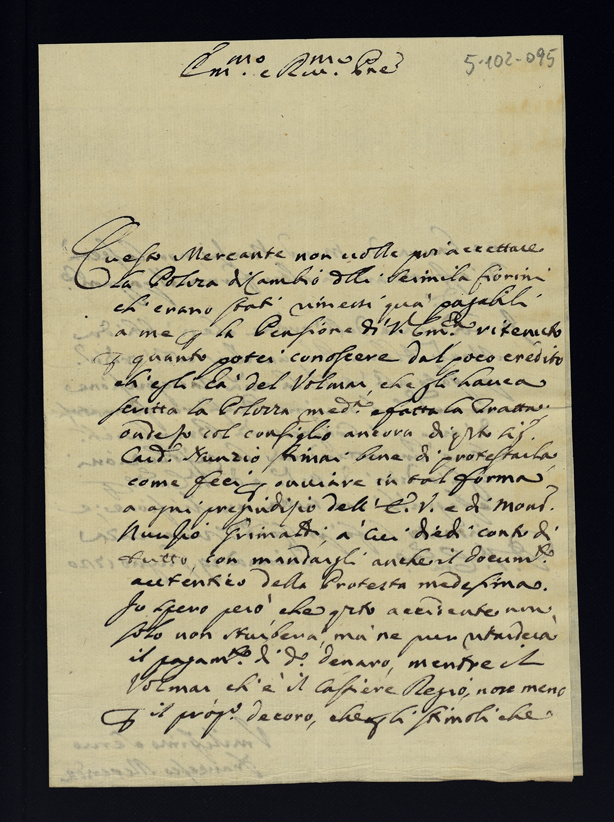 Em.mo e Rm.mo Pre
5-102-095
Questo Mercante non volle poi accettare
la Poloza di Cambio delli seimila fiorini
ch'erano stati rimessi quà pagabili
a me p la Pensione di V. Em.za ritenuto
p quanto potei conoscere dal poco credito
ch'egli hà del Volmar, che gli havea
scritta la Polozza med.ma e fatta la Tratta
ond'io col consiglio ancora di q̃sto Sig.r
Card. Nunzio stimai bene di protestarla
come feci p ovviare in tal forma
a ogni pregiudizio dell'E. V. e di Mons.
Nunzio Grimaldi a cui diedi conto di
tutto, con mandargli anche il docum.to
autentico della Protesta medesima.
Io spero però che q̃sto accidente non
solo non sturberà, mà ne pur ritarderà
il pagam.to di d.o denaro, mentre il
Volmar ch'è il Cassiere Regio, non meno
p il prop.o decoro, che gli stimoli che